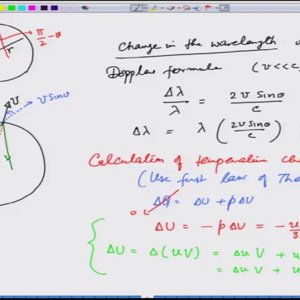 π/2 - θ
r
v
v sinθ
Change in the wavelength
Doppler formula (v << c
Δλ/λ = 2v sinθ/c
Δλ = λ (2v sinθ/c)
Calculation of temperature ch
(Use first law of The
ΔQ = ΔU + pΔV
0
ΔU = - pΔV = - u/3
ΔU = Δ(uV) = Δu V + u
= Δu V + u